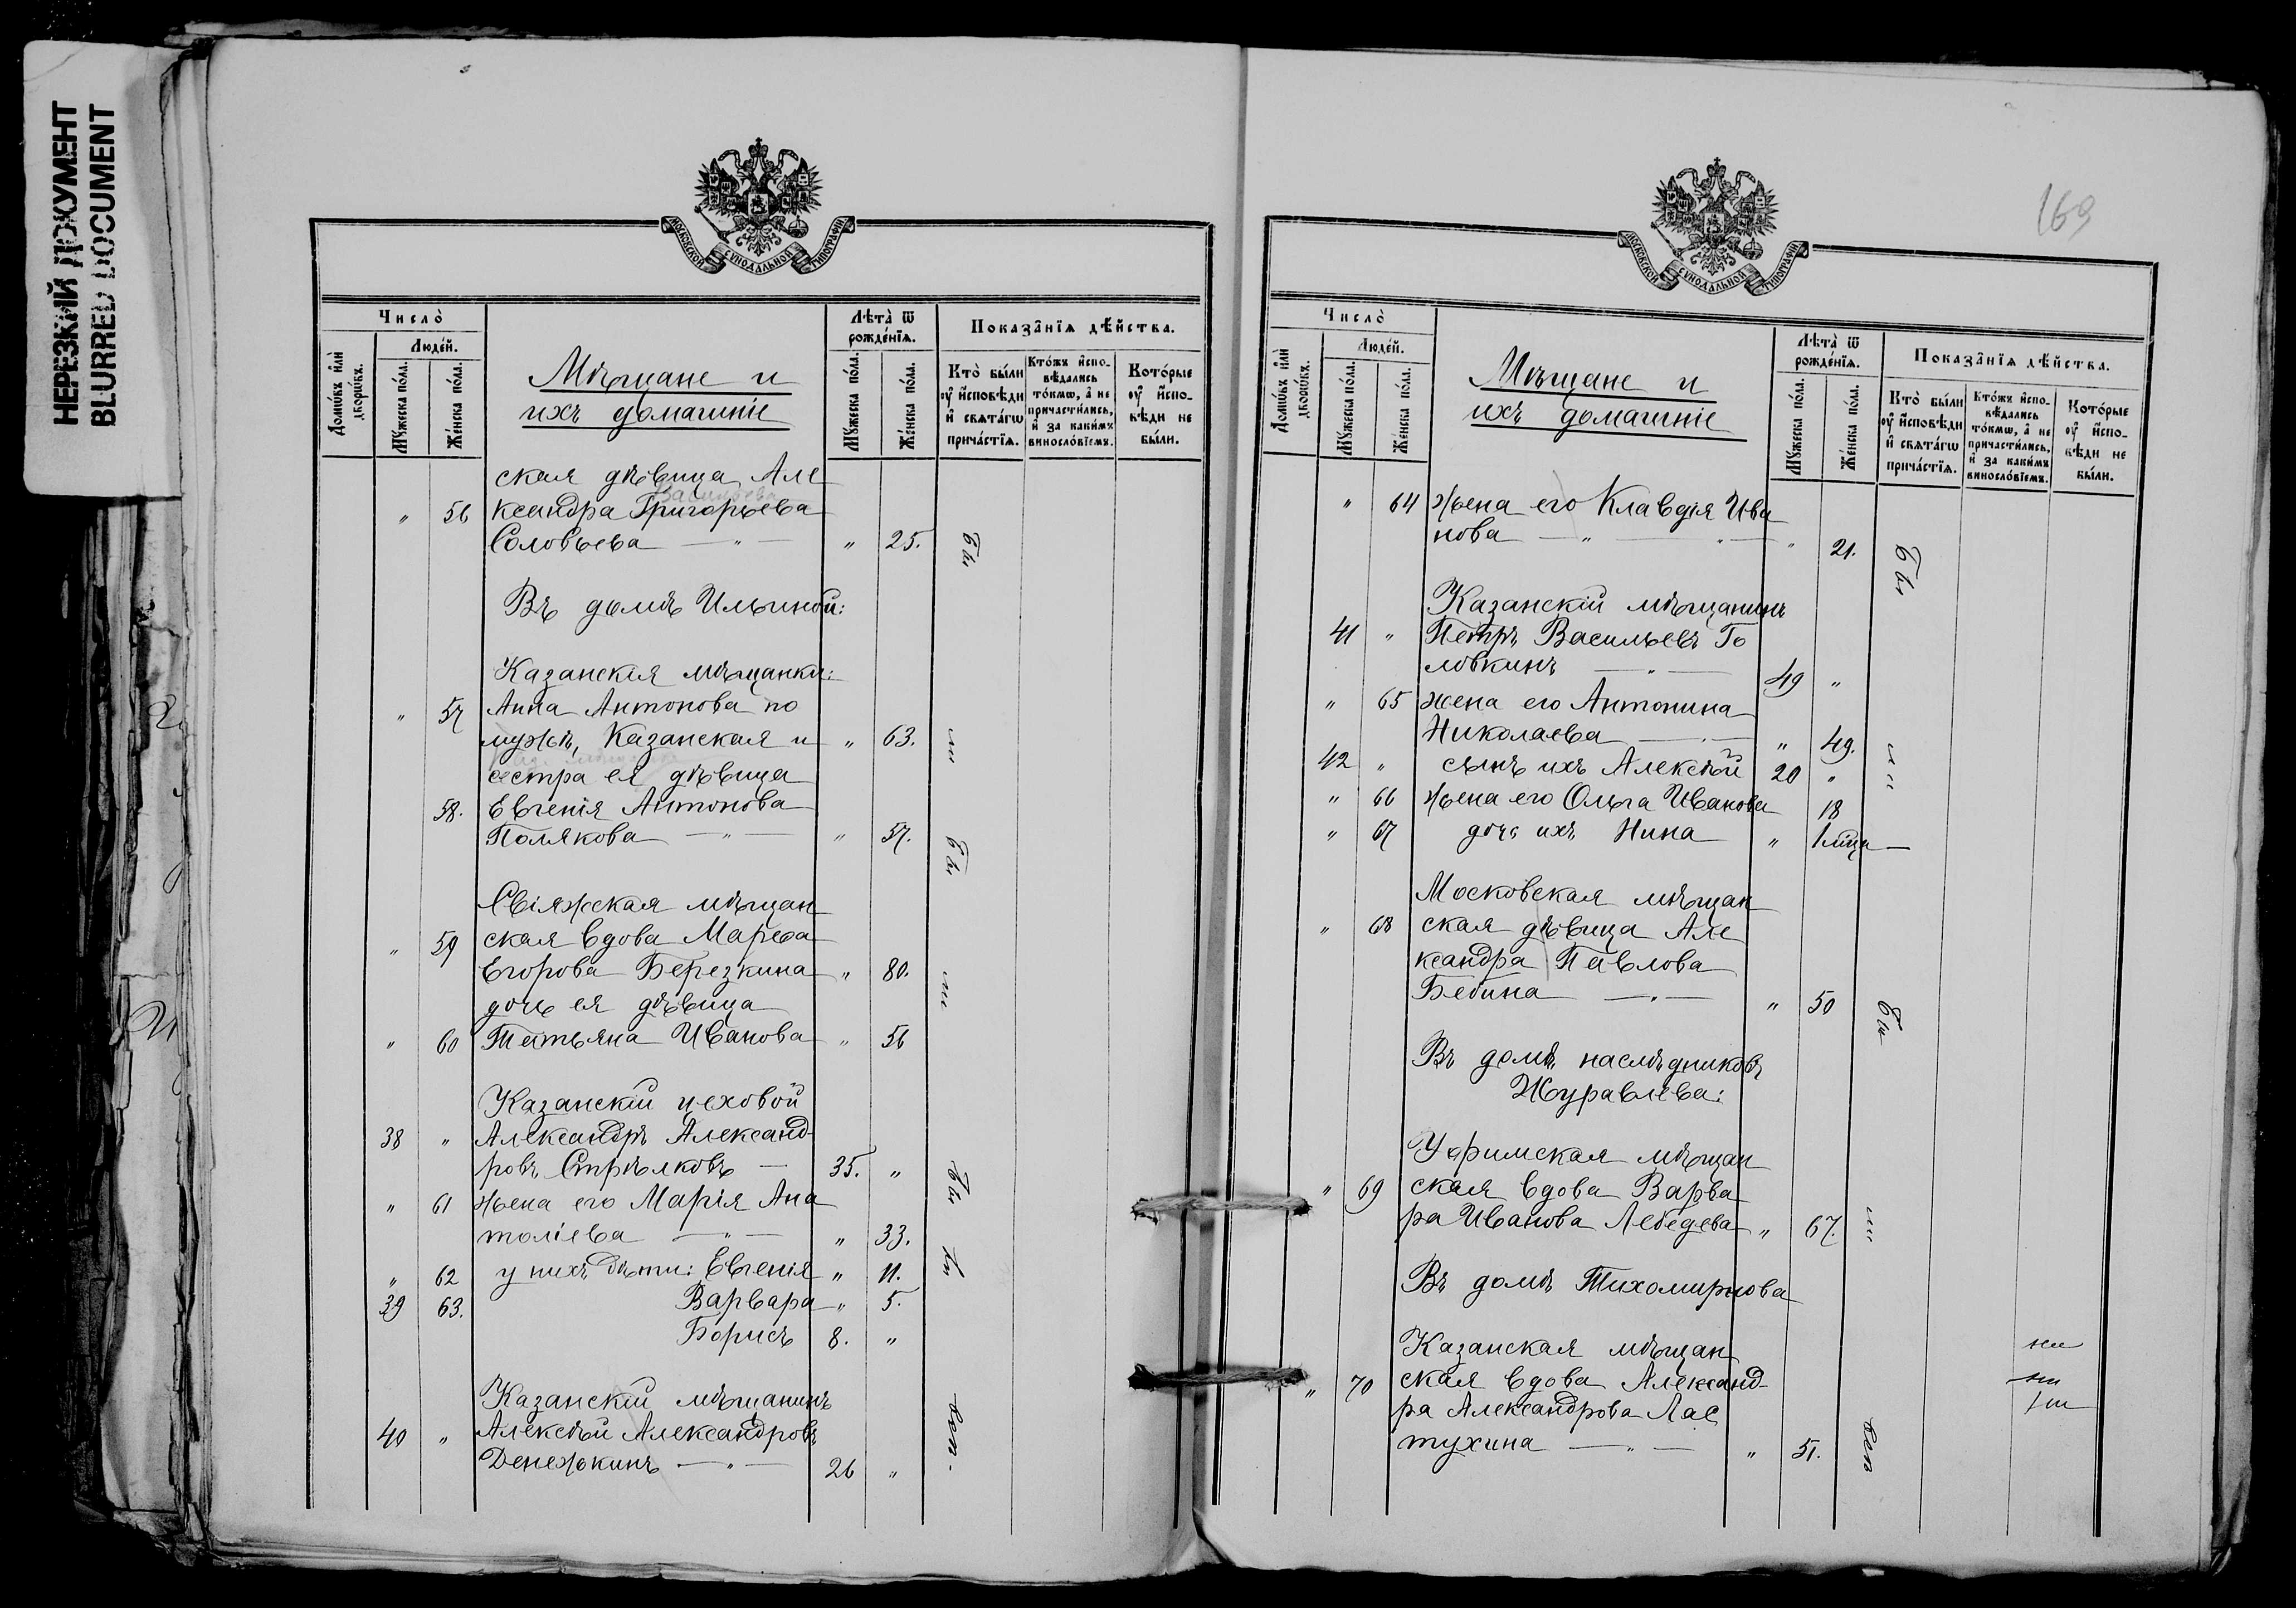 НЕРЕЗКИЙ ДОКУМЕНТ
BLURRED DOCUMENT
МОСКОВСКОЙ СѴНОДАЛЬНОЙ ТИПОГРАФІИ
Число̀
Людей.
Домѡ́въ и҆лѝ дворѡ́въ.
Мꙋ́жеска по́ла.
Же́нска по́ла.
Мѣщане и
ихъ домашніе
Лѣта̀ ѿ рожде́нїѧ.
Мꙋ́жеска по́ла.
Же́нска по́ла.
Показа̑нїѧ дѣ́йства.
Кто̀ бы́ли оу҆ и҆сповѣди и҆ свѧта́гѡ прича́стїѧ.
Кто́жъ и҆спо-вѣдались то́кмѡ, а҆ не причасти́лись, и҆ за каки́мъ винословїемъ.
Кото́рые оу҆ и҆спо-вѣди не бы́ли.
ская дѣвица Але
Васильева
" 56 ксандра Григорьева
Соловьева — " — " 25. Бы
Въ домѣ Ильиной:
Казанскія мѣщанки:
" 57 Анна Антонова по
мужѣ, Казанская и " 63. ли
сестра ея дѣвица
58. Евгенія Антонова
Полякова — " — " 57. Бы
Свіяжская мѣщан
" 59 ская вдова Марѳа
Егорова Березкина " 80. ли
дочь ея дѣвица
" 60 Татьяна Иванова " 56
Казанскій цеховой
38 " Александръ Александ-
ровъ Стрѣлковъ — 35. " Бы
" 61 жена его Марія Ана
толіева — " — " 33.
" 62 у нихъ дѣти: Евгенія " 11.
39 63. Варвара " 5.
Борисъ 8. "
Казанскій мѣщанинъ
40 " Алексѣй Александровъ
Денежкинъ — " — 26 "
169
МОСКОВСКОЙ СѴНОДАЛЬНОЙ ТИПОГРАФІИ
Число̀
Людей.
Домѡ́въ и҆лѝ дворѡ́въ.
Мꙋ́жеска по́ла.
Же́нска по́ла.
Мѣщане и
ихъ домашніе
Лѣта̀ ѿ рожде́нїѧ.
Мꙋ́жеска по́ла.
Же́нска по́ла.
Показа̑нїѧ дѣ́йства.
Кто̀ бы́ли оу҆ и҆сповѣди и҆ свѧта́гѡ прича́стїѧ.
Кто́жъ и҆спо-вѣдались то́кмѡ, а҆ не причасти́лись, и҆ за каки́мъ винословїемъ.
Кото́рые оу҆ и҆спо-вѣди не бы́ли.
" 64 жена его Клавдія Ива
нова — " — " — " 21. Бы
Казанскій мѣщанинъ
41 " Петръ Васильевъ Го
ловкинъ — " — 49 "
" 65 жена его Антонина
Николаева — " — " 49. ли
42 " сынъ ихъ Алексѣй 20 "
" 66 жена его Ольга Иванова 18
" 67 дочь ихъ Нина " 1 мѣца —
Московская мѣщан
" 68 ская дѣвица Але
ксандра Павлова
Бебина — " — " 50 Бы
Въ домѣ наслѣдниковъ
Журавлева:
Уфимская мѣщан
" 69 ская вдова Варва
ра Иванова Лебедева " 67. ли
Въ домѣ Тихомирнова
Казанская мѣщан
" 70 ская вдова Александ-
ра Александрова Лас
тухина — " — " 51.